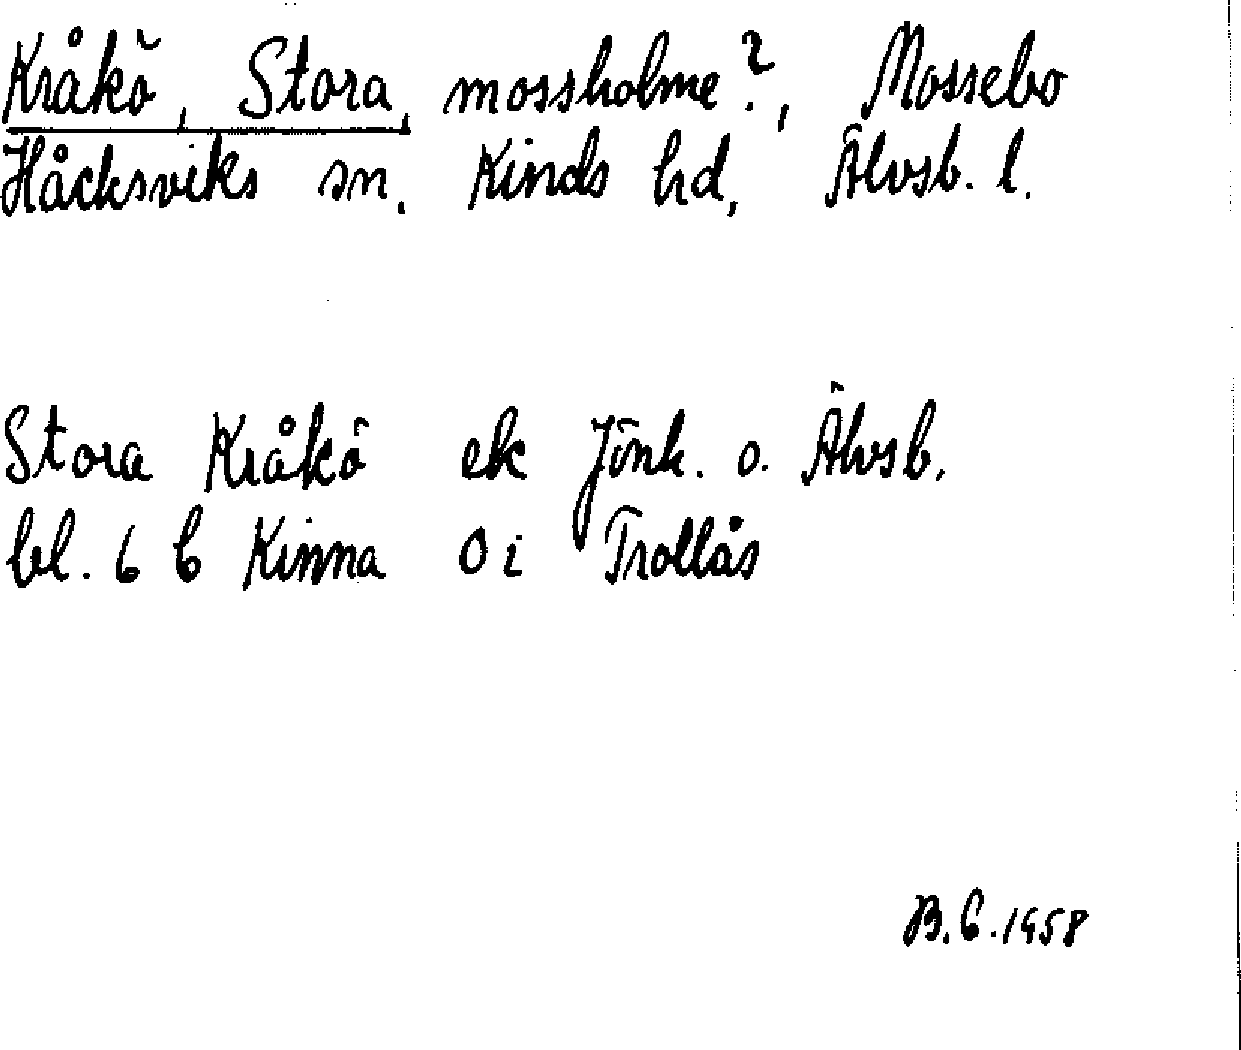 Kråkö, Stora, mossholme?, Mossebo
Håcksviks sn. Kinds hd, Älvsb. l.
Stora Kråkö ek Jönk. o. Älvsb.
bl. 6 b Kinna O i Trollås
B.G. 1958